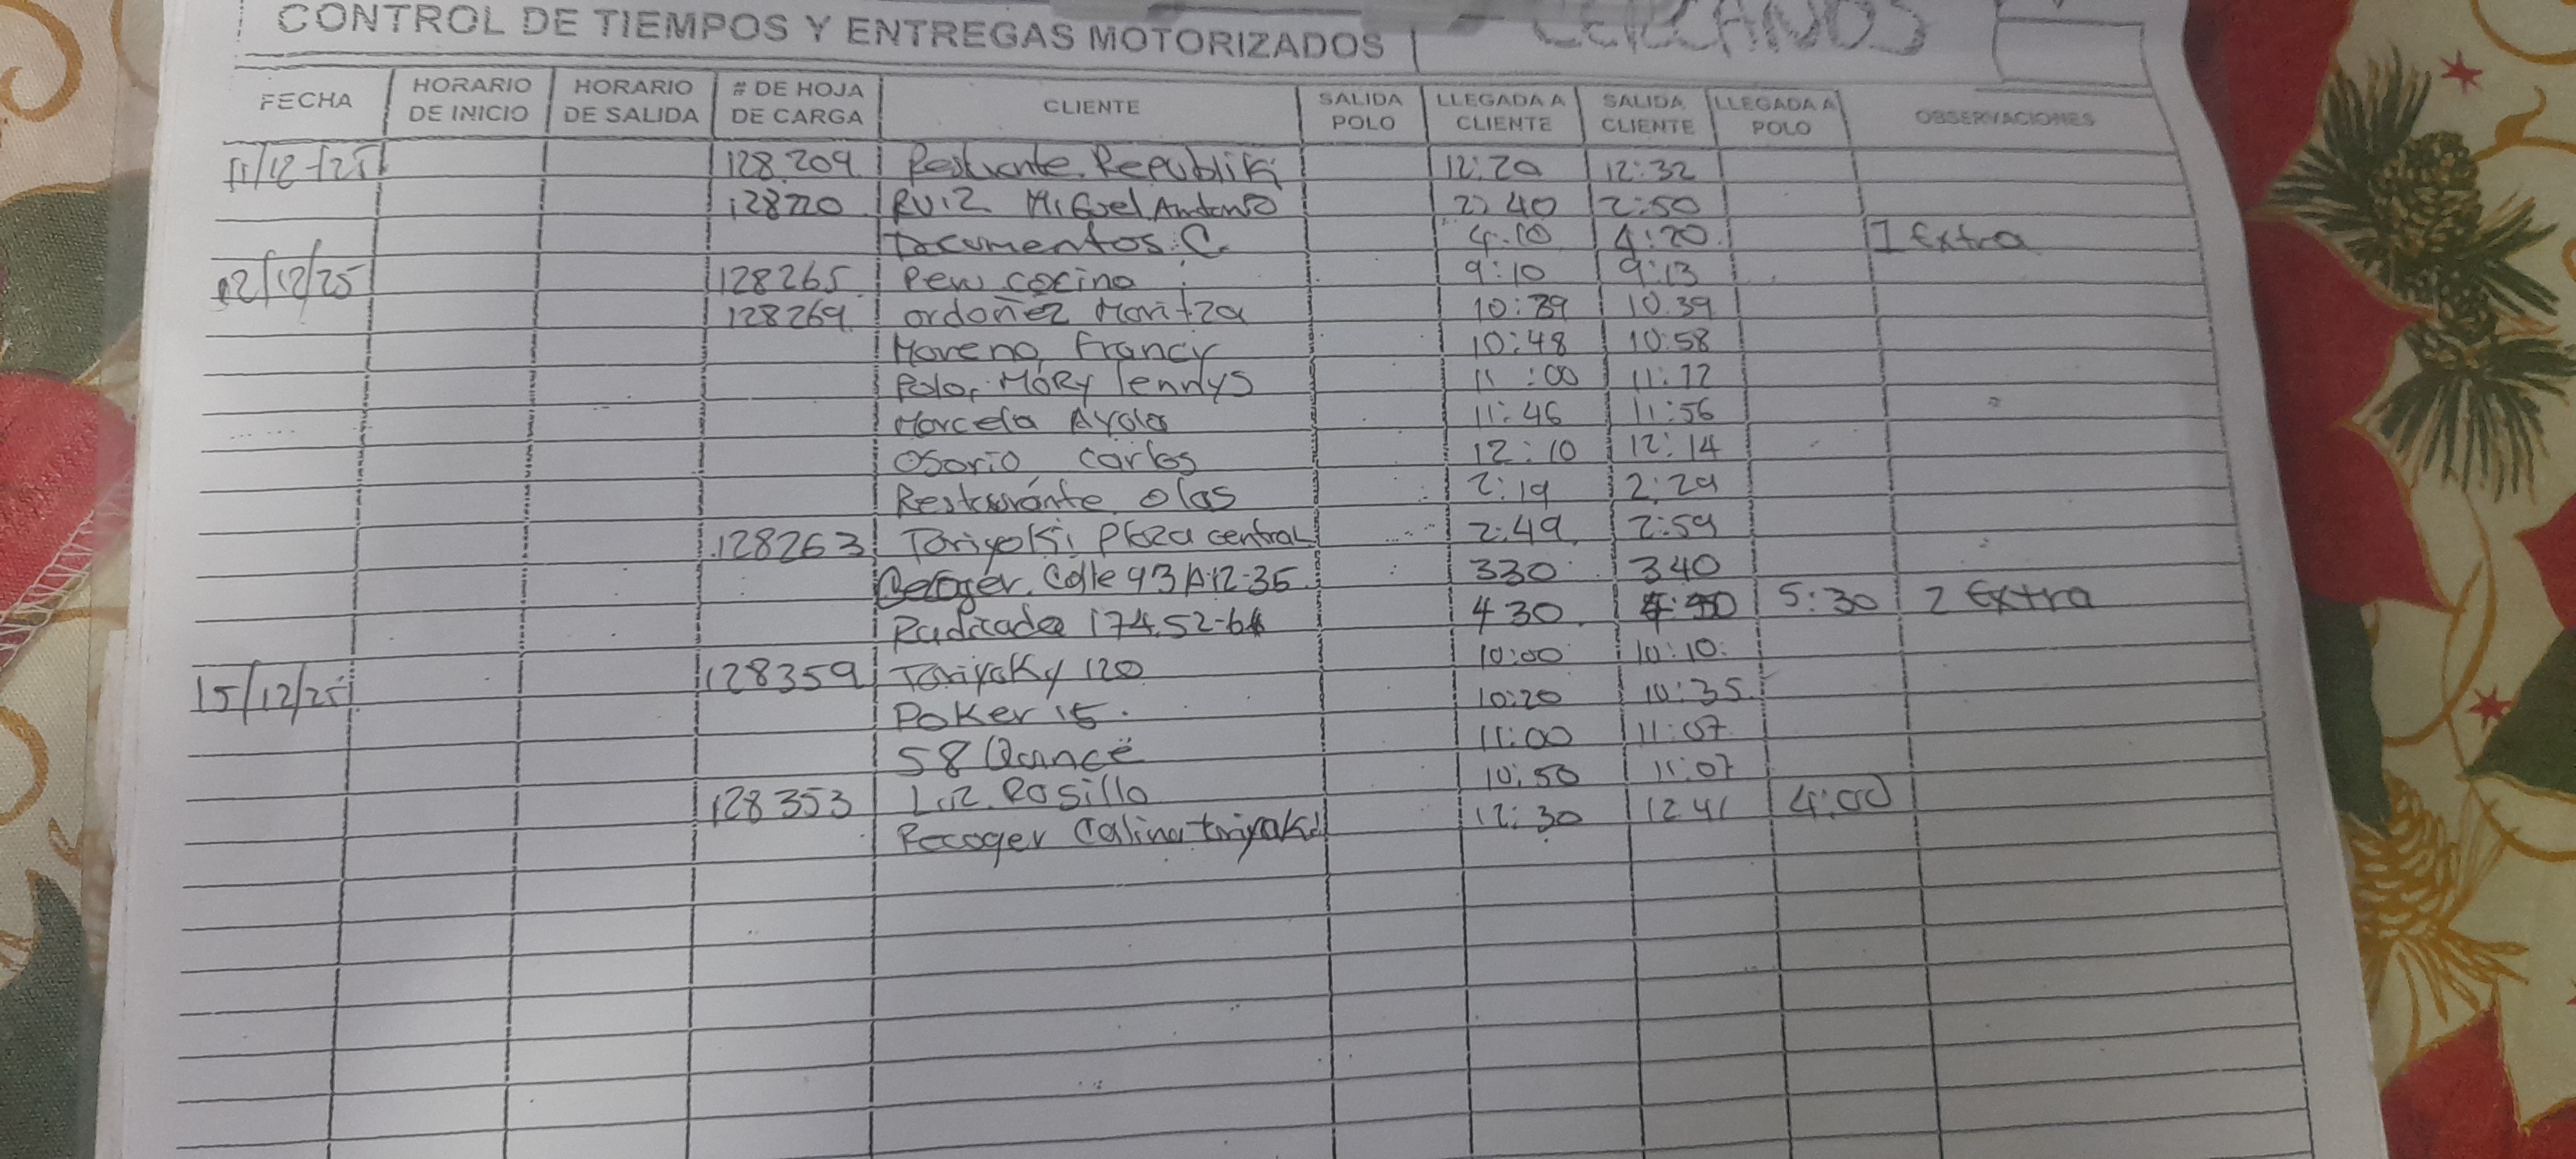 CONTROL DE TIEMPOS Y ENTREGAS MOTORIZADOS CERCANOS
FECHA HORARIO DE INICIO HORARIO DE SALIDA # DE HOJA DE CARGA CLIENTE SALIDA POLO LLEGADA A CLIENTE SALIDA CLIENTE LLEGADA A POLO OBSERVACIONES
11/12/25 128.209 Republik 12:20 12:32
128220 RUIZ Miguel Antonio 2:40 2:50
Documentos C. 4:10 4:20 1 Extra
12/12/25 128265 Peru cocina 9:10 9:13
128269 ordoñez Maritza 10:39 10:39
Moreno Francy 10:48 10:58
Polo, MARY lennys 11:00 11:12
Marcela Ayala 11:46 11:56
Osorio carlos 12:10 12:14
Restaurante olas 2:19 2:29
128263 Tariyoki Plaza central 2:49 2:59
Recoger Calle 93A 12-35 330 340
Radicado 174.52-64 430 5:30 2 Extra
15/12/25 128359 Tariyaky 120 10:00 10:10
Poker 15. 10:20 10:35
58 Quince 11:00 11:07
128353 Luz Rosillo 10:50 11:07
Recoger Colina tariyaki 12:30 12 41 4:00